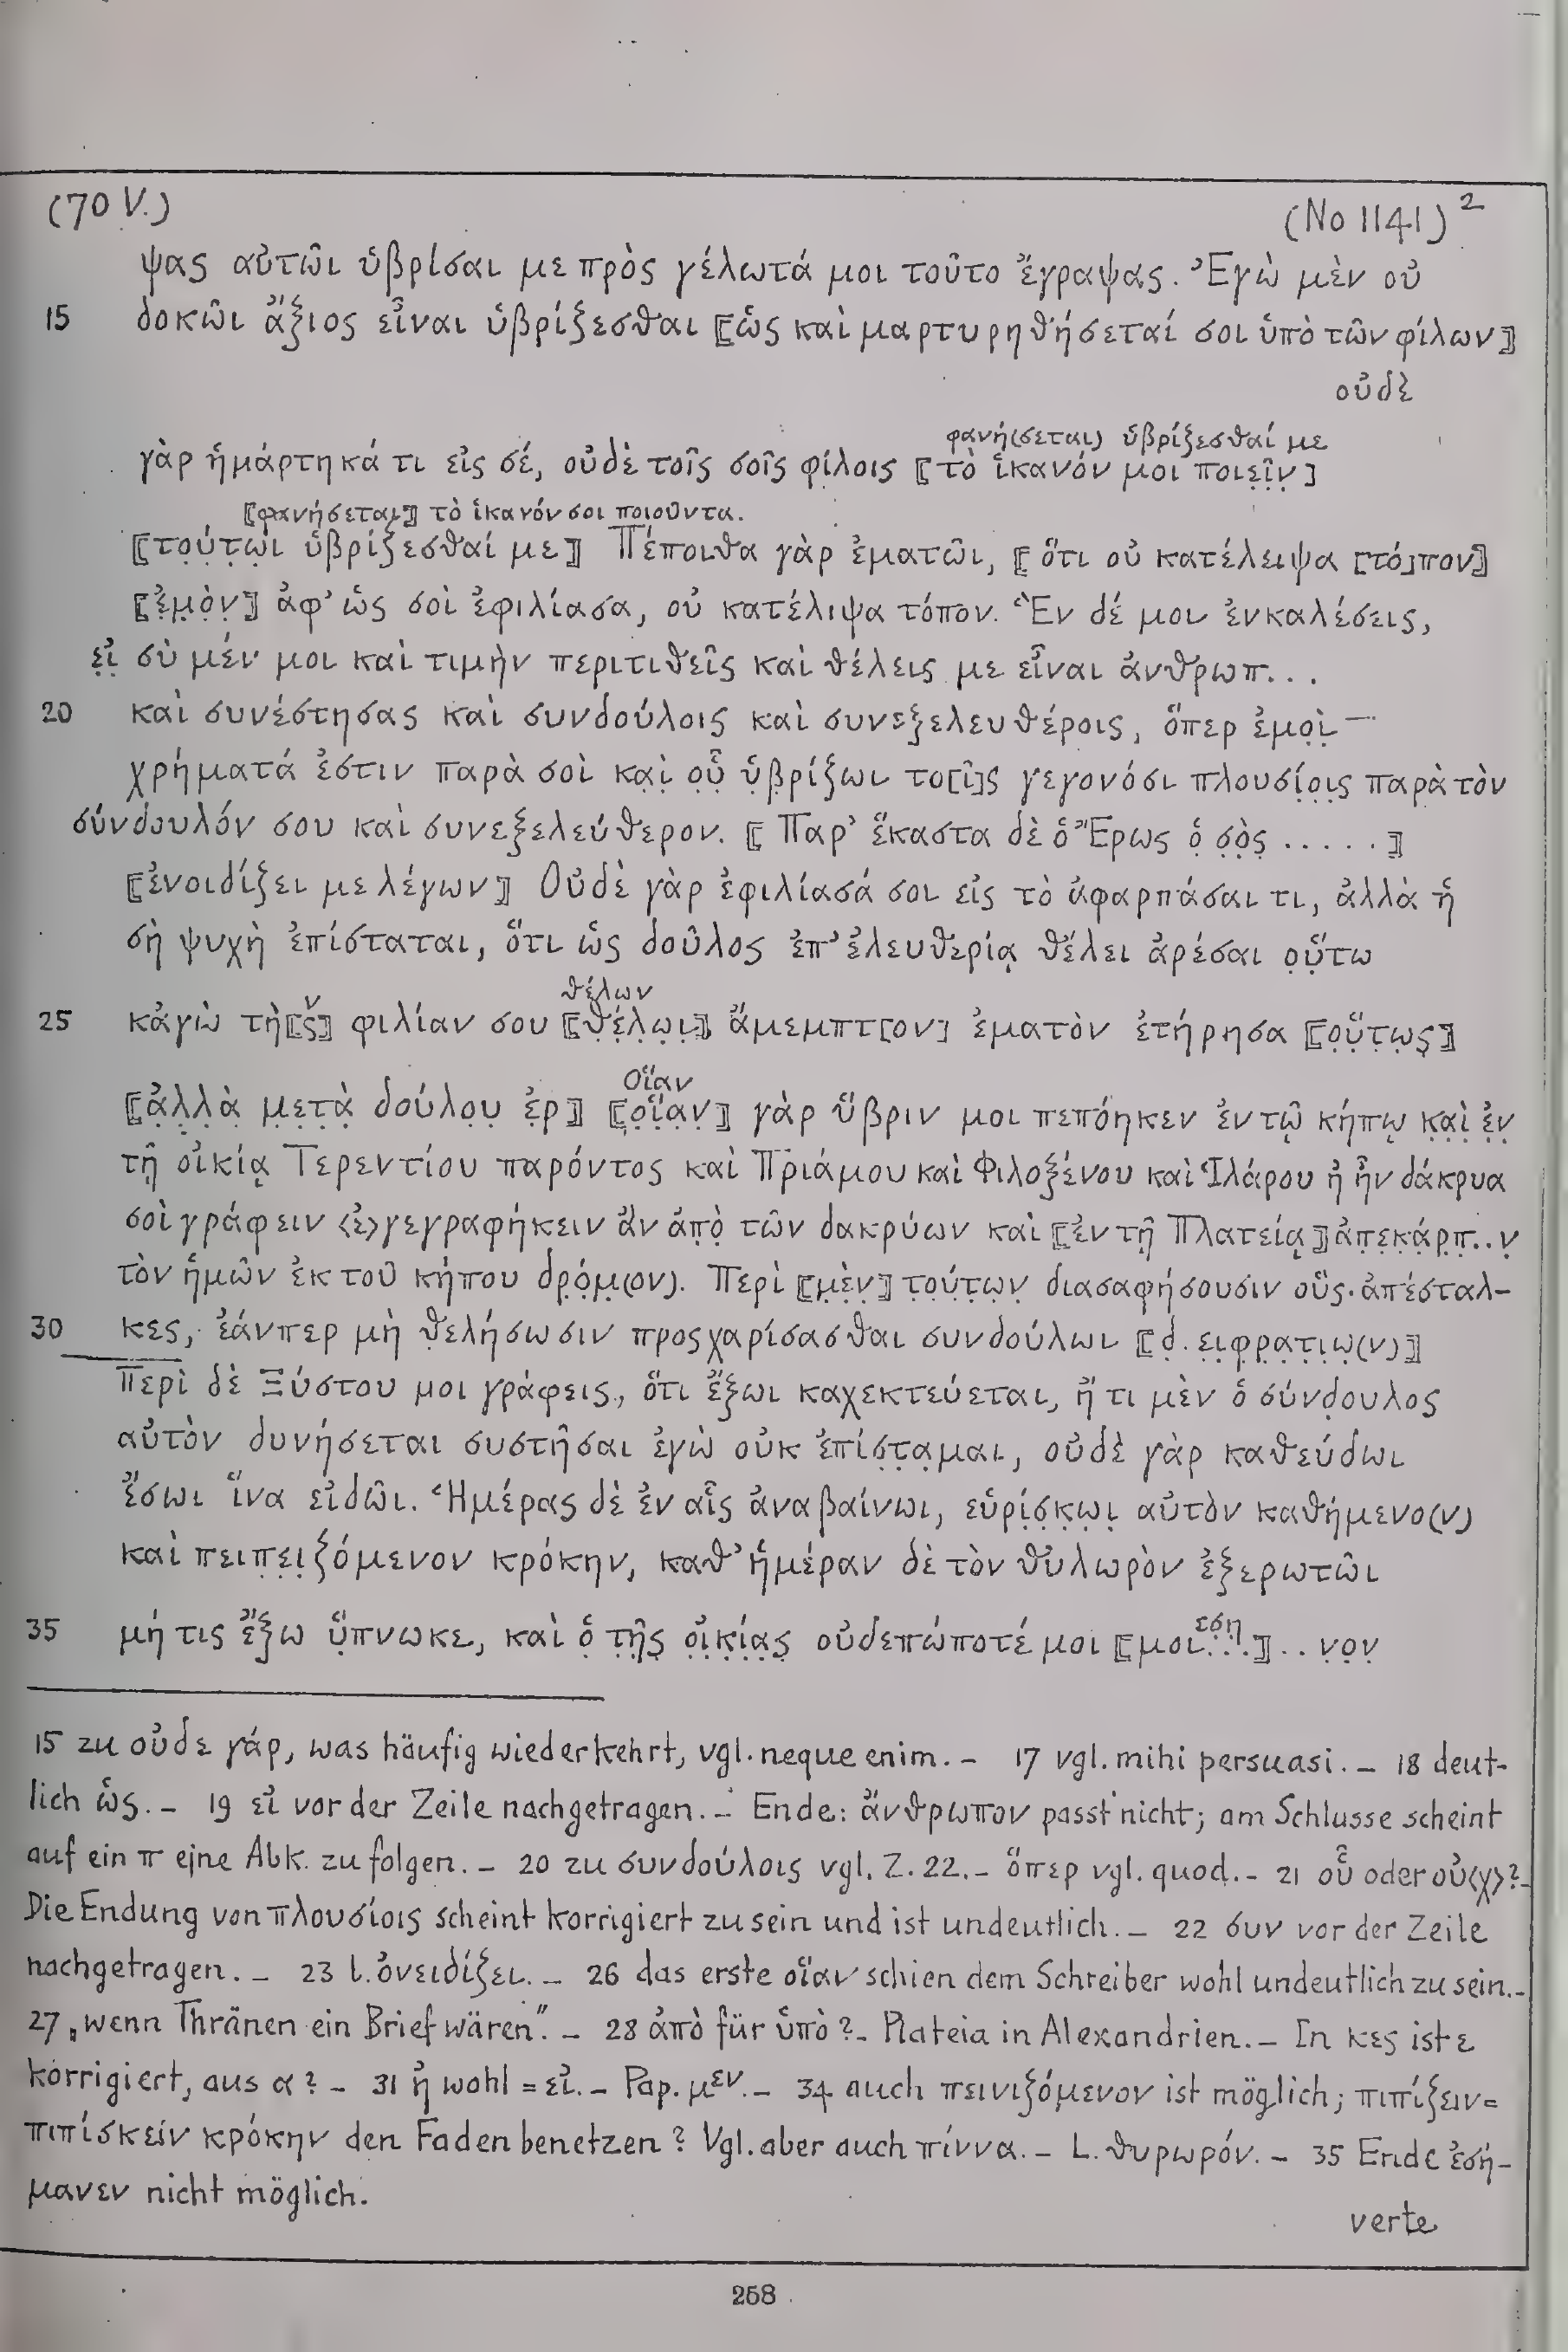 (70 V.)
(No 1141)²
ψας αὐτῶι ὑβρίσαι με πρὸς γέλωτά μοι τοῦτο ἔγραψας. Ἐγὼ μὲν οὐ
15 δοκῶι ἄξιος εἶναι ὑβρίζεσθαι ⟦ὡς καὶ μαρτυρηθήσεταί σοι ὑπὸ τῶν φίλων⟧
οὐδὲ
φανή(σεται) ὑβρίζεσθαί με
γὰρ ἡμάρτηκά τι εἰς σέ, οὐδὲ τοῖς σοῖς φίλοις ⟦τὸ ἱκανόν μοι ποιẹῖ̣ν̣⟧
⟦φανήσεται⟧ τὸ ἱκανόν σοι ποιοῦντα.
⟦τọύ̣τ̣ω̣ι ὑβρίζεσθαί με⟧ Πέποιθα γὰρ ἐματῶι, ⟦ὅτι οὐ κατέλειψα [τό]πον⟧
⟦ἐ̣μ̣ὸ̣ν̣⟧ ἀφ' ὡς σοὶ ἐφιλίασα, οὐ κατέλιψα τόπον. Ἓν δέ μοι ἐνκαλέσεις,
ε̣ἰ̣ σὺ μέν μοι καὶ τιμὴν περιτιθεῖς καὶ θέλεις με εἶναι ἀνθρωπ...
20 καὶ συνέστησας καὶ συνδούλοις καὶ συνεξελευθέροις, ὅπερ ἐμο̣ὶ̣ —
χρήματά ἐστιν παρὰ σοὶ κα̣ὶ̣ ο̣ὗ̣ ὑ̣β̣ρίζωι το[ῖ]ς γεγονόσι πλουσί̣ο̣ι̣ς παρὰ τὸν
σύνδουλόν σου καὶ συνεξελεύθερον. ⟦Παρ' ἕκαστα δὲ ὁ Ἔρως ὁ̣ σ̣ὸ̣ς̣ .....⟧
⟦ἐνοιδίζει με λέγων⟧ Οὐδὲ γὰρ ἐφιλίασά σοι εἰς τὸ ἀφαρπάσαι τι, ἀλλὰ ἡ
σὴ ψυχὴ ἐπίσταται, ὅτι ὡς δοῦλος ἐπ' ἐλευθερίᾳ θέλει ἀρέσαι ο̣ὕ̣τω
ν θέλων
25 κἀγὼ τὴ⟦ς̣⟧ φιλίαν σου ⟦θ̣έ̣λ̣ω̣ι̣⟧ ἄμεμπτ[ον] ἐματὸν ἐτήρησα ⟦ο̣ὕ̣τ̣ω̣ς̣⟧
Οἵαν
⟦ἀ̣λ̣λ̣ὰ̣ μ̣ε̣τ̣ὰ̣ δούλο̣υ̣ ἐ̣ρ̣⟧ ⟦ο̣ἵ̣α̣ν̣⟧ γὰρ ὕβριν μοι πεπόηκεν ἐν τῷ κήπῳ κ̣α̣ὶ̣ ἐ̣ν̣
τῇ οἰκίᾳ Τερεντίου παρόντος καὶ Πριάμου καὶ Φιλοξένου καὶ Ἱλάρου ἠ ἦν δάκρυα
σοὶ γράφειν ⟨ἐ⟩γεγραφήκειν ἂν ἀπ̣ὸ̣ τῶν δακρύων καὶ ⟦ἐν τῇ Πλατείᾳ⟧ ἀ̣π̣ε̣κ̣ά̣ρ̣π̣..ν̣
τὸν ἡμῶν ἐκ τοῦ κήπου δρ̣ό̣μ̣(ον). Περὶ ⟦μ̣ὲ̣ν̣⟧ τ̣ο̣ύ̣τ̣ω̣ν̣ διασαφήσουσιν οὓς ἀπέσταλ-
30 κες, ἐάνπερ μὴ θ̣ελήσωσιν προςχαρίσασθαι συνδούλωι ⟦δ̣. ε̣ι̣φ̣ρ̣α̣τ̣ι̣ω̣(ν)⟧
Περὶ δὲ Ξύστου μοι γράφεις, ὅτι ἔξωι καχεκτεύεται, ἤ τι μὲν ὁ σύνδ̣ουλος
αὐτὸν δυνήσεται συστῆσαι ἐγὼ οὐκ ἐπίσ̣τ̣α̣μαι, οὐδὲ γὰρ καθεύδωι
ἔσωι ἵνα εἰδῶι. Ἡμέρας δὲ ἐν αἷς ἀναβαίνωι, εὑρί̣σ̣κ̣ω̣ι̣ αὐτὸν καθήμενο(ν)
καὶ πειπ̣ε̣ι̣ζόμενον κρόκην, καθ' ἡμέραν δὲ τὸν θυλωρὸν ἐξερωτῶι
εση
35 μή τις ἔξω ὕ̣πνωκε, καὶ ὁ̣ τ̣ῆ̣ς̣ ο̣ἰ̣κ̣ί̣α̣ς̣ οὐδεπώποτέ μοι ⟦μοι...⟧ ..ν̣ο̣ν̣
15 zu οὐδε γάρ, was häufig wiederkehrt, vgl. neque enim. – 17 vgl. mihi persuasi. – 18 deut-
lich ὡς. – 19 εἰ vor der Zeile nachgetragen. – Ende: ἄνθρωπον passt nicht; am Schlusse scheint
auf ein π eine Abk. zu folgen. – 20 zu συνδούλοις vgl. Z. 22. – ὅπερ vgl. quod. – 21 οὗ oder οὐ⟨χ⟩? –
Die Endung von πλουσίοις scheint korrigiert zu sein und ist undeutlich. – 22 συν vor der Zeile
nachgetragen. – 23 l. ὀνειδίζει. – 26 das erste οἵαν schien dem Schreiber wohl undeutlich zu sein. –
27 „wenn Thränen ein Brief wären". – 28 ἀπὸ für ὑπὸ? – Plateia in Alexandrien. – In κες ist ε
korrigiert, aus α? – 31 ἤ wohl = εἰ. – Pap. μ^εν. – 34 auch πεινιζόμενον ist möglich; πιπίζειν =
πιπίσκειν κρόκην den Faden benetzen? Vgl. aber auch πίννα. – L. θυρωρόν. – 35 Ende ἐσή-
μανεν nicht möglich.
verte
258